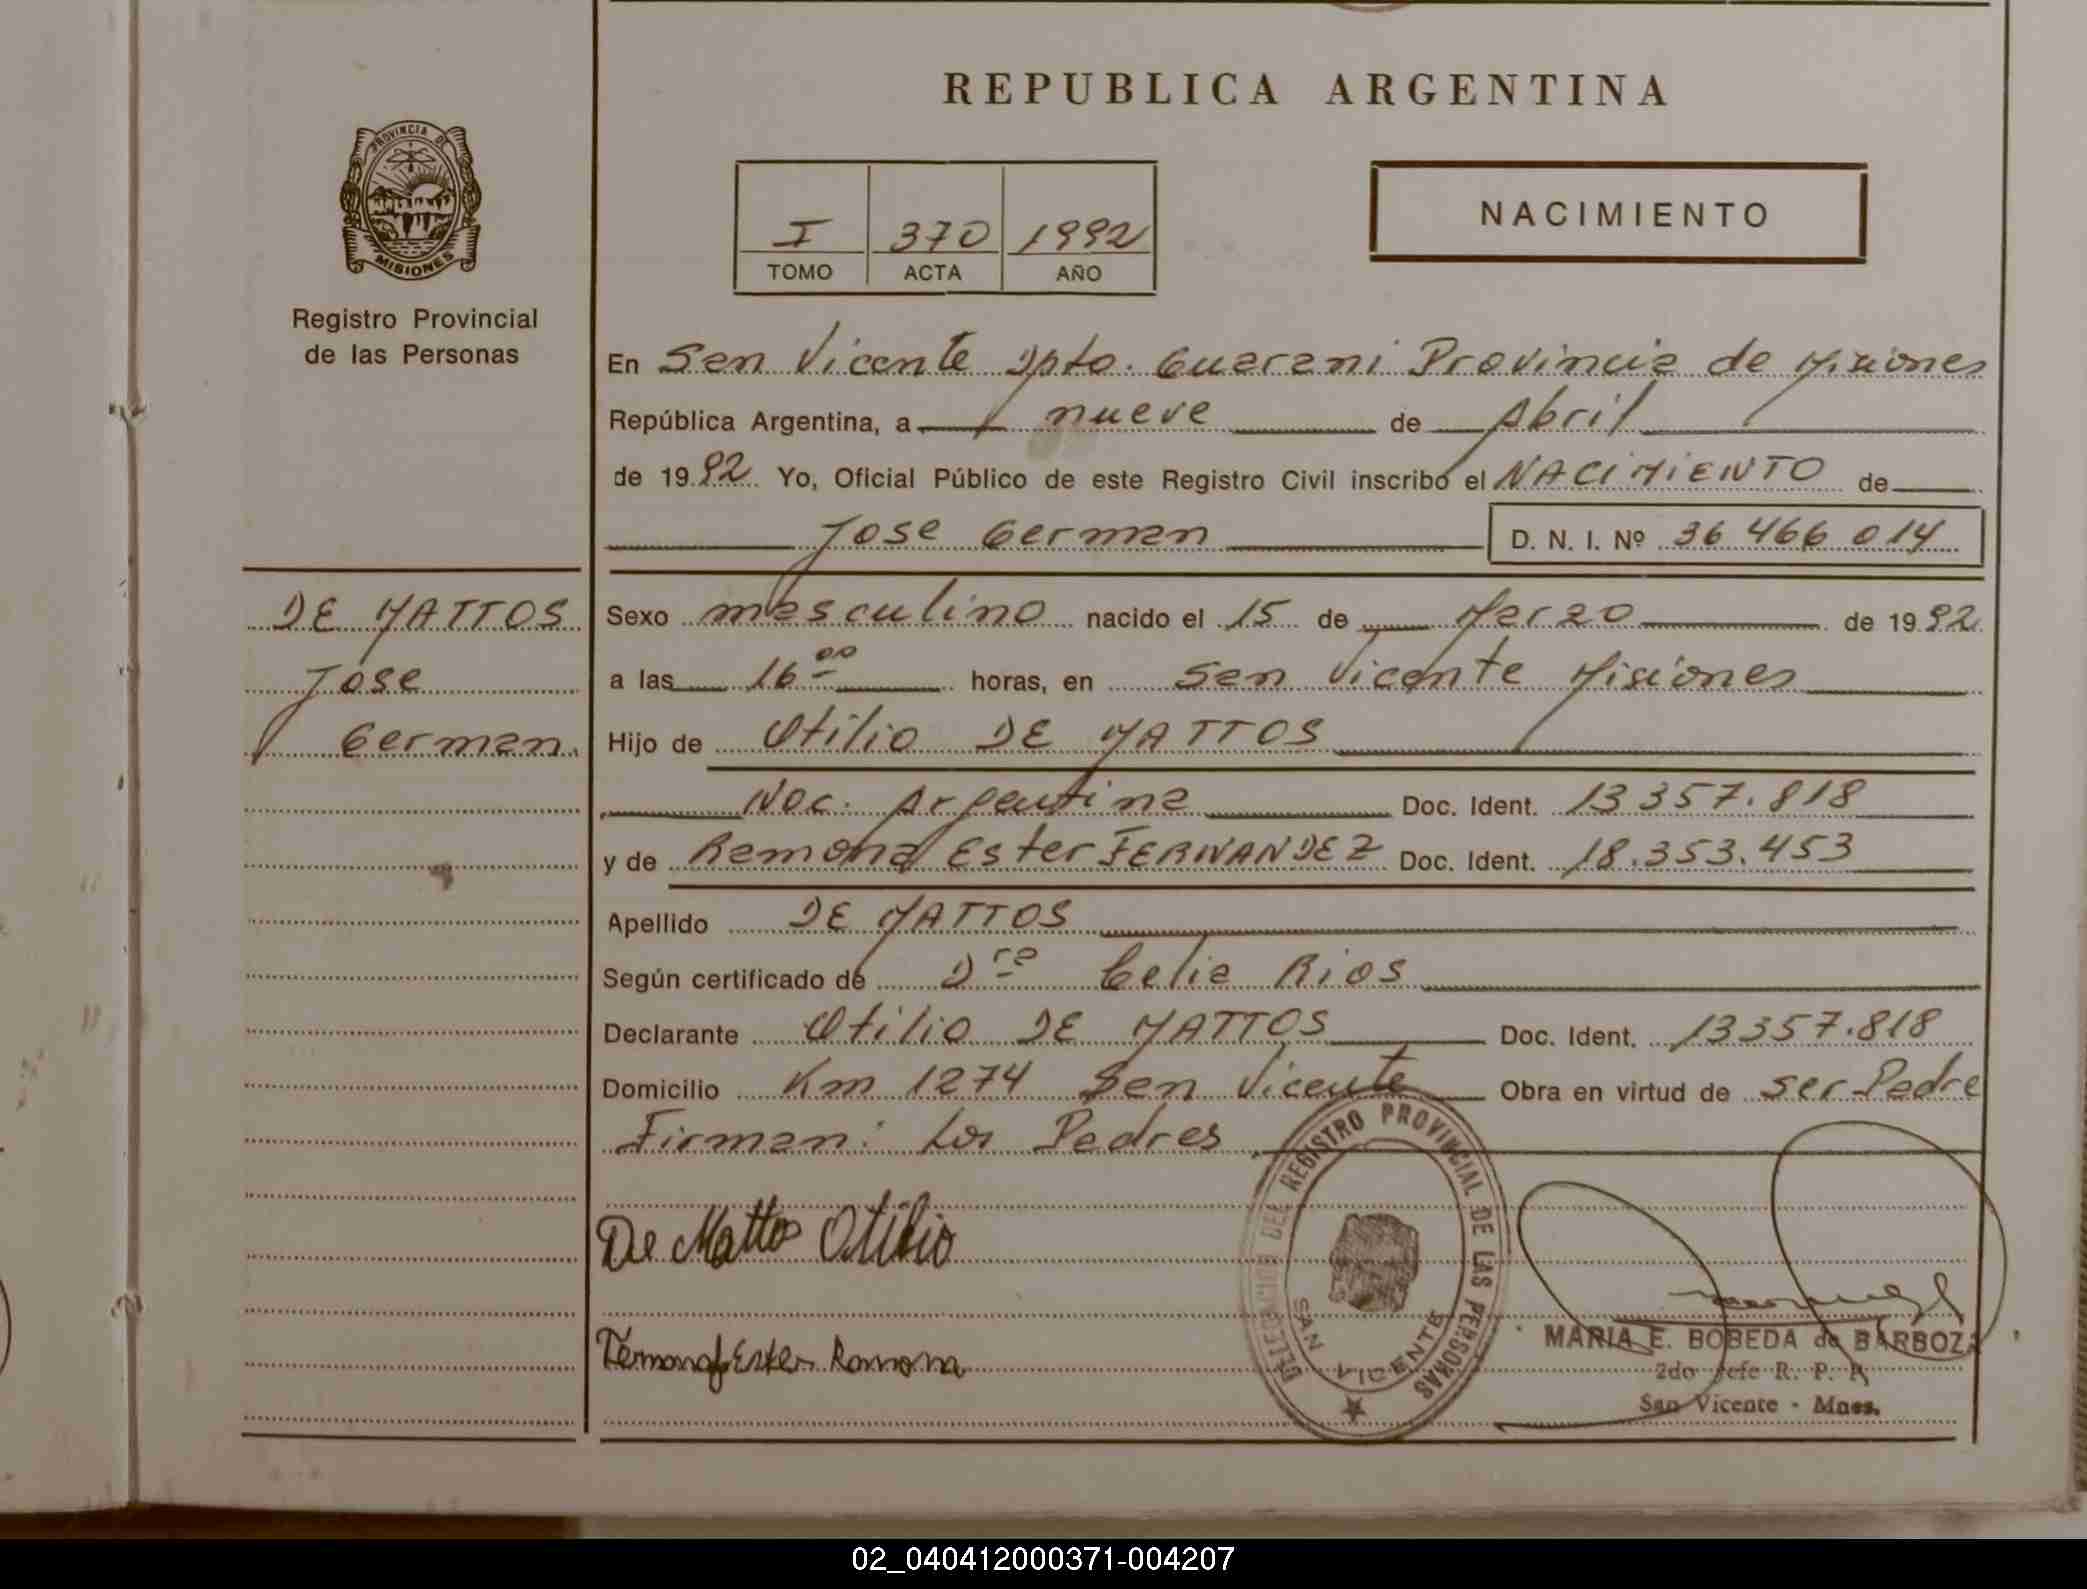 REPUBLICA ARGENTINA
PROVINCIA DE
MISIONES
Registro Provincial
de las Personas
I 370 1992
TOMO ACTA AÑO
NACIMIENTO
En San Vicente Dpto. Guarani Provincia de Misiones
República Argentina, a nueve de Abril
de 1992. Yo, Oficial Público de este Registro Civil inscribo el NACIMIENTO de
Jose German D. N. I. Nº 36 466 014
DE MATTOS
Jose
German.
Sexo masculino nacido el 15 de Marzo de 1992
a las 16 00 horas, en San Vicente Misiones
Hijo de Otilio DE MATTOS
Nac. Argentina Doc. Ident. 13357.818
y de Ramona Ester FERNANDEZ Doc. Ident. 18.353.453
Apellido DE MATTOS
Según certificado de Dra Celia Rios
Declarante Otilio DE MATTOS Doc. Ident. 13357.818
Domicilio Km 1274 San Vicente Obra en virtud de ser Padre
Firman: Los Padres
De Mattos Otilio
Ester Ramona
DELEGACION DEL REGISTRO PROVINCIAL DE LAS PERSONAS
SAN VICENTE
MARIA E. BOBEDA de BARBOZA
2do Jefe R. P. P.
San Vicente - Mnes.
02_040412000371-004207